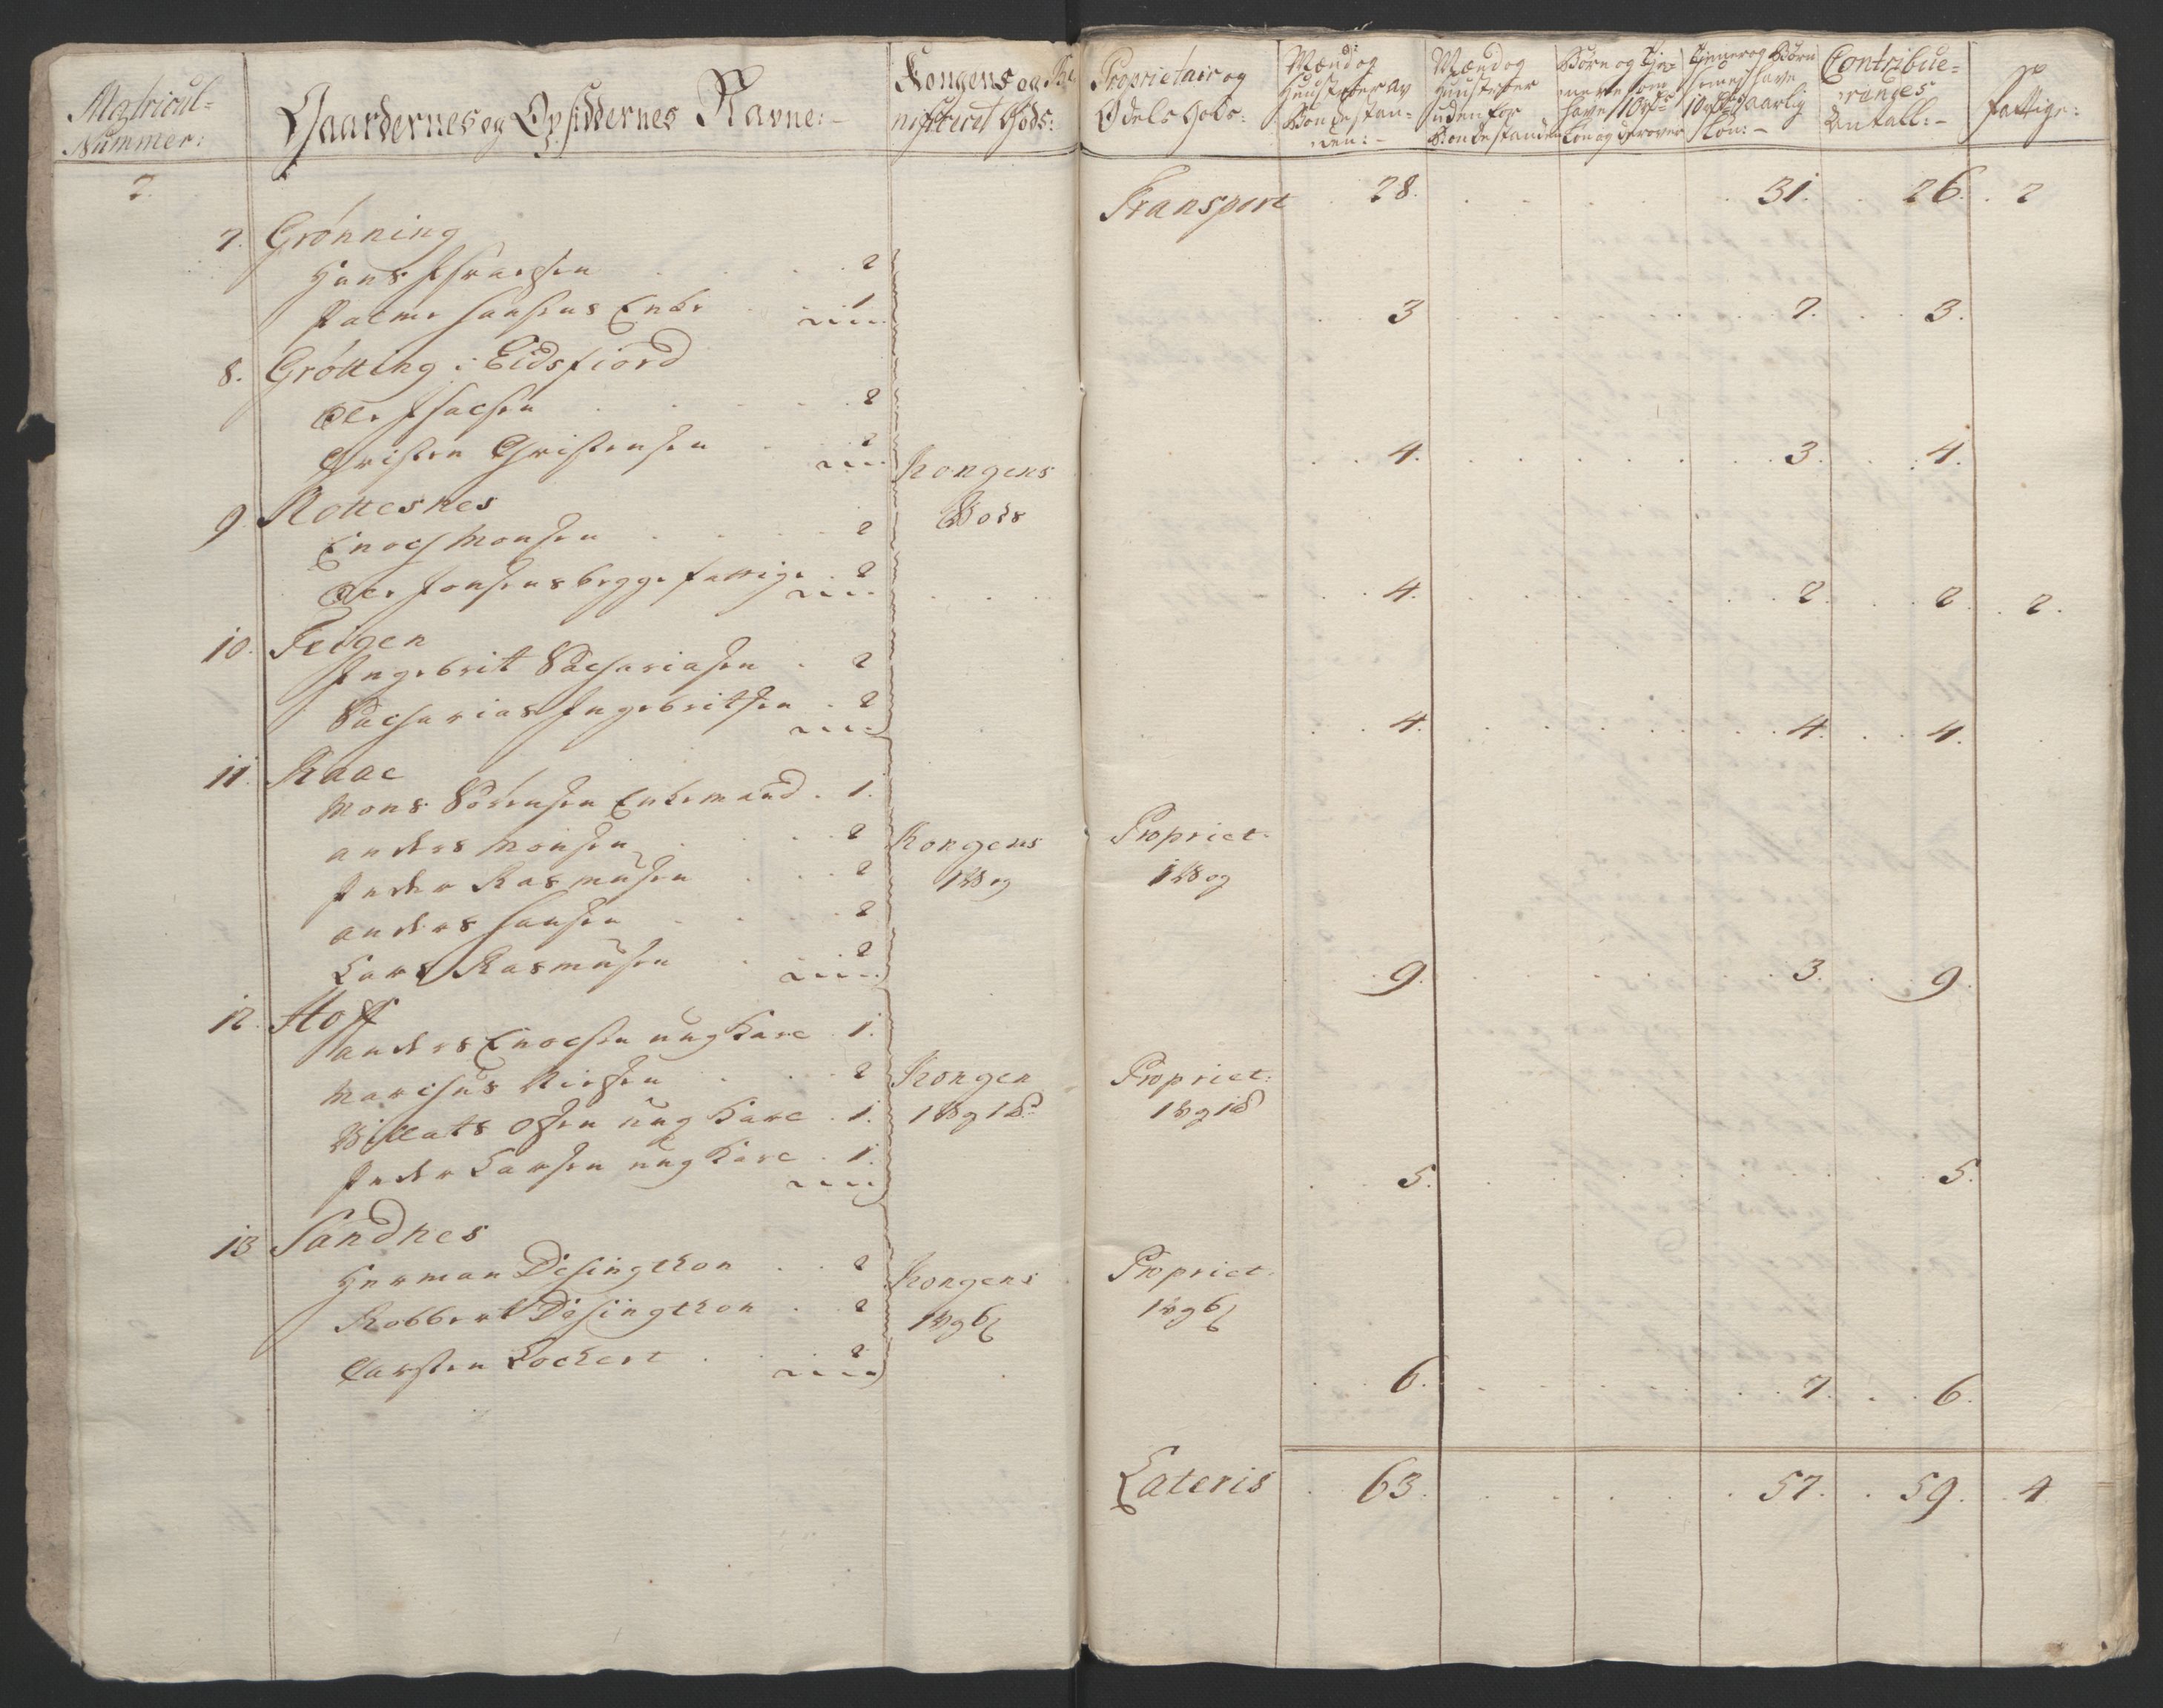 Matricul-
Nummer:
Gaardernes og Opsiddernes Navne:-
Kongens og Be
nificeret Gods:
Proprietair og
Odels Gods:
Mænd og
Hustruer av
Bondestan-
den:-
Mænd og
Hustruer
uden for
Bondestanden
Børn og Tje-
nere som
have 10 rdr
Løn og derover
Tjenere og Børn
som ej have
10 rdr aarlig
Løn:-
Contribue-
renges
Antall:-
Fattige:
2.
Transport 28. 31. 26. 2
7. Grønning
Hans 2
Hansens Enke 1
3 7. 3.
8. Grøtting i Eidsfiord
Ole Isacsen 2
Christen Christensen 2
Kongens
4. 3. 4.
9. Rottesnes
Gods
Enoch Monsen 2
Ole Jonsen begge fattige 2
4. 2. 2. 2.
10. Teigen
Ingebrit Sacariasen 2
Sacarias Ingebritsen 2
4. 4. 4.
11. Kaae
Mons Sørensen Enkemand 1.
Anders Monsen 2
Kongens
Propriet.
Peder Rasmusen 2
1 og
1 og
Anders Hansen 2
Lars Rasmusen 2
9. 3. 9.
12. Hoff
Anders Enocsen ung Karl 1.
Marchus Nielsen 2
Kongen
Propriet:
Willats Olsen ung Karl 1.
Peder Larsen ung Karl 1.
5. 5.
13 Sandnes
Herman Desingthon 2
Kongens
Propriet.
Robbert Desingthon 2
Carsten Lockert 2
6. 7. 6.
Lateris 63. 57. 59. 4